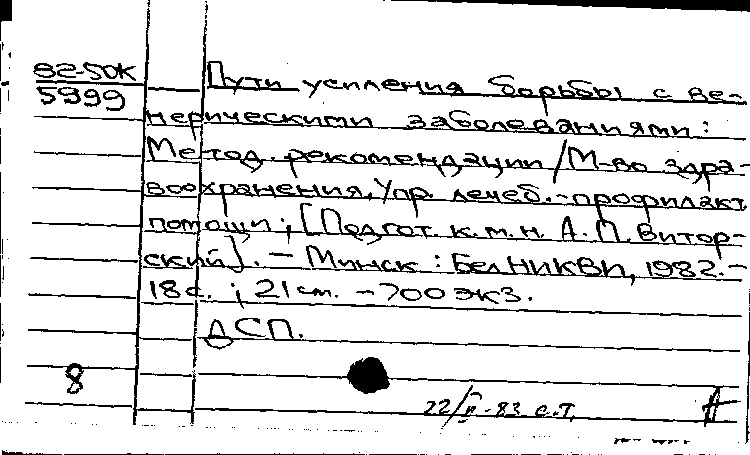 82-50К
5999
Пути усиления борьбы с ве-
нерическими заболеваниями:
Метод. рекомендации / М-во здра-
воохранения, Упр. лечеб.-профилакт.
помощи; [Подгот. к.м.н. А.П. Витор-
ский]. - Минск: БелНИКВИ, 1982.-
18 с.; 21 см. - 700 экз.
ДСП.
8
22/II-83 с.т.